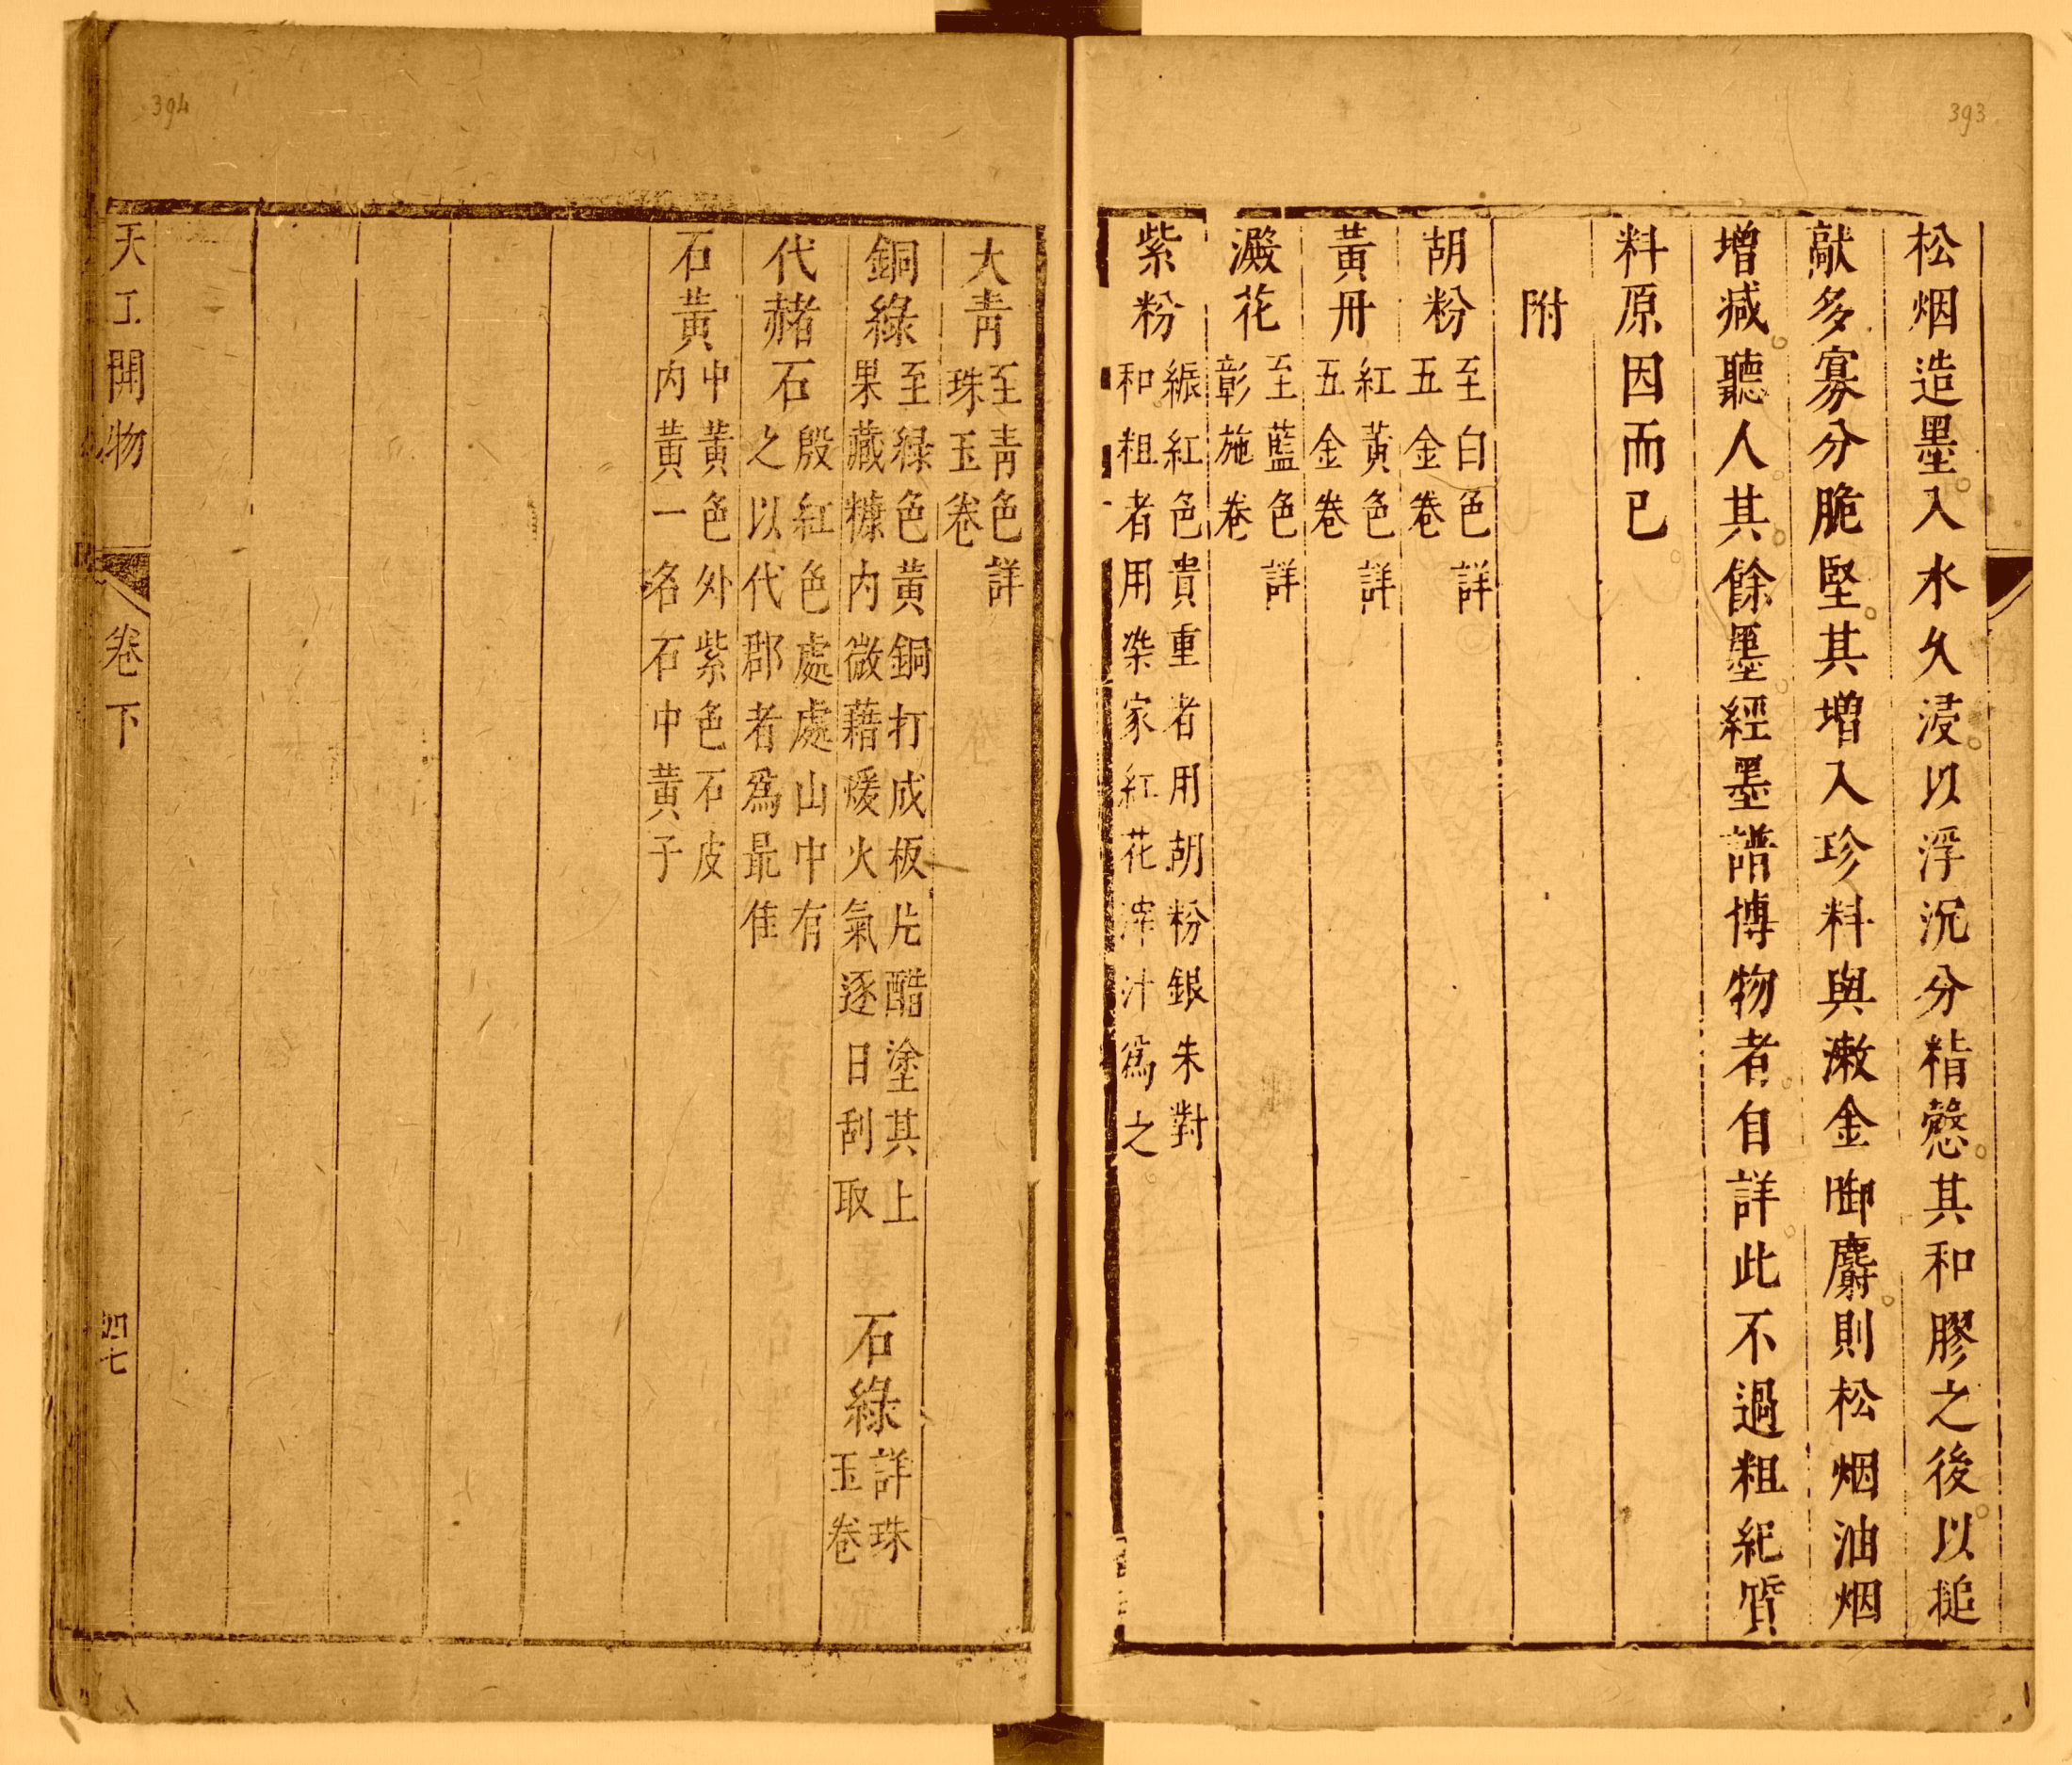 393
松烟造墨入水久浸以浮沉分精慤其和膠之後以搥
敲多寡分脆堅其增入珍料與漱金啣麝則松烟油烟
增減聽人其餘墨經墨譜博物者自詳此不過粗紀質
料原因而已
附
胡粉 至白色詳
五金卷
黃丹 紅黃色詳
五金卷
澱花 至藍色詳
彰施卷
紫粉 縝紅色貴重者用胡粉銀朱對
和粗者用染家紅花滓汁爲之
394
大青 至青色詳
珠玉卷
銅綠 至绿色黃銅打成板片醋塗其上
果藏糠内微藉煖火氣逐日刮取
石綠 詳珠
玉卷
代赭石 殷紅色處處山中有
之以代郡者爲最佳
石黃 中黃色外紫色石皮
内黃一名石中黃子
天工開物
卷下
四七